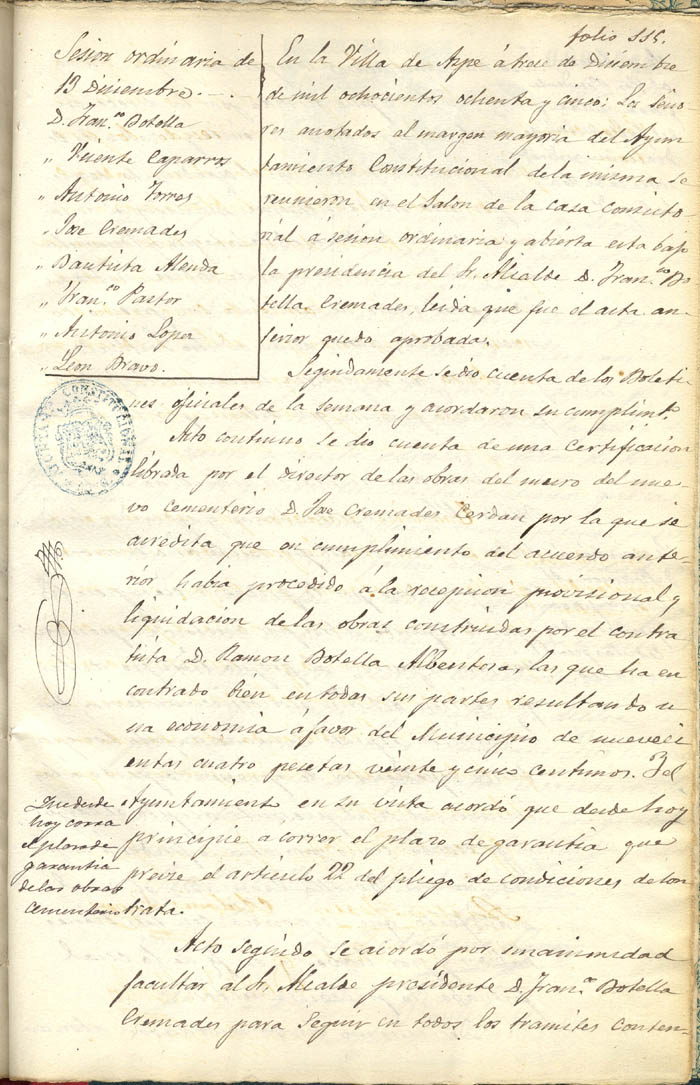 folio 115.
Sesion ordinaria de
13 Diciembre. - .
D. Fran.co Botella
" Vicente Caparros
" Antonio Torres
" Jose Cremades
" Bautista Alenda
" Fran.co Pastor
" Antonio Lopez
" Leon Bravo.
En la Villa de Aspe á trece de Diciembre
de mil ochocientos ochenta y cinco: Los seño
res anotados al margen mayoria del Ayun
tamiento Constitucional de la misma se
reunieron en el Salon de la casa consisto
rial á sesion ordinaria y abierta esta bajo
la presidencia del Sr. Alcalde D. Fran.co Bo
tella Cremades, leida que fue el acta an-
terior quedo aprobada.
Segindamente se dio cuenta de los Boleti
nes oficiales de la semana y acordaron su cumplim.to
Acto continuo se dio cuenta de una certificacion
librada por el director de las obras del muro del nue-
vo cementerio D. Jose Cremades Cerdan por la que se
acredita que en cumplimiento del acuerdo ante-
rior habia procedido á la recepcion provisional y
liquidacion de las obras construidas por el contra
tista D. Ramon Botella Albentosa, las que ha en
contrado bien en todas sus partes resultando u
na economia á favor del Municipio de noveci
entas cuatro pesetas veinte y cinco centimos. Y el
Ayuntamiento en su vista acordó que desde hoy
principie a correr el plazo de garantia que
previe el articulo 22 del pliego de condiciones de con
trata.
Que desde
hoy corra
el plazo de
garantia
de las obras
cementerio
Acto segindo se acordó por unanimidad
facultar al Sr. Alcalde presidente D. Fran.co Botella
Cremades para seguir en todos los tramites conten-